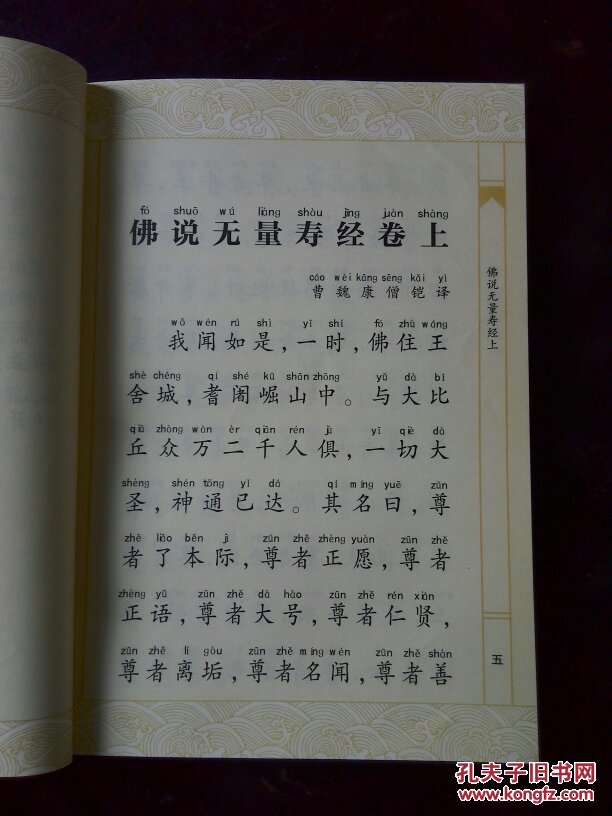 fó shuō wú liàng shòu jīng juàn shàng
佛说无量寿经卷上
cáo wèi kāng sēng kǎi yì
曹魏康僧铠译
wǒ wén rú shì yī shí fó zhù wáng
我闻如是,一时,佛住王
shè chéng qí shé kū shān zhōng yǔ dà bǐ
舍城,耆阇崛山中。与大比
qiū zhòng wàn èr qiān rén jù yī qiè dà
丘众万二千人俱,一切大
shèng shén tōng yǐ dá qí míng yuē zūn
圣,神通已达。其名曰,尊
zhě liǎo běn jì zūn zhě zhèng yuàn zūn zhě
者了本际,尊者正愿,尊者
zhèng yǔ zūn zhě dà hào zūn zhě rén xián
正语,尊者大号,尊者仁贤,
zūn zhě lí gòu zūn zhě míng wén zūn zhě shàn
尊者离垢,尊者名闻,尊者善
佛说无量寿经上
五
孔夫子旧书网
www.kongfz.com